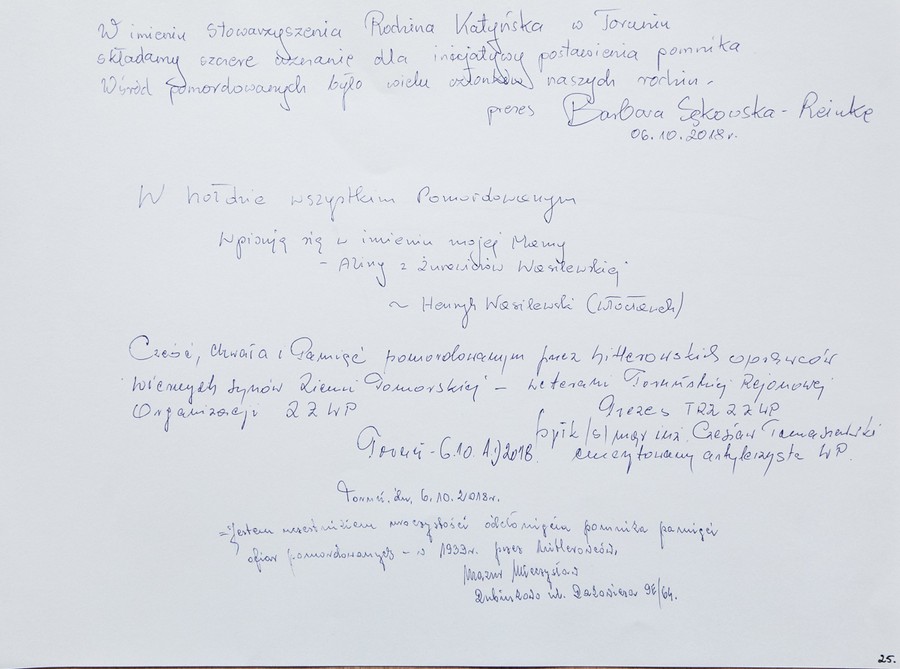 W imieniu Stowarzyszenia Rodzina Katyńska w Toruniu
składamy szczere uznanie dla inicjatywy postawienia pomnika
Wśród pomordowanych było wielu członków naszych rodzin.
prezes Barbara Sękowska-Reinke
06.10.2018r.
W hołdzie wszystkim Pomordowanym
Wpisuję się w imieniu mojej Mamy
- Aliny z Żurawiczów Wasilewskiej
~ Henryk Wasilewski (Włocławek)
Cześć, chwała i Pamięć pomordowanym przez hitlerowskich oprawców
wiernych synów Ziemi Pomorskiej - weterani Toruńskiej Rejonowej
Organizacji ZŻWP
Prezes TRZŻWP
ppłk /s/ mgr inż. Czesław Tomaszewski
Toruń - 6.10. 2018. emerytowany artylerzysta WP.
Toruń, dn. 6.10.2018r.
Jestem uczestnikiem uroczystości odsłonięcia pomnika pamięci
ofiar pomordowanych - w 1939r. przez hitlerowców,
Mazur Mieczysław
ul. 9E/64.
25.